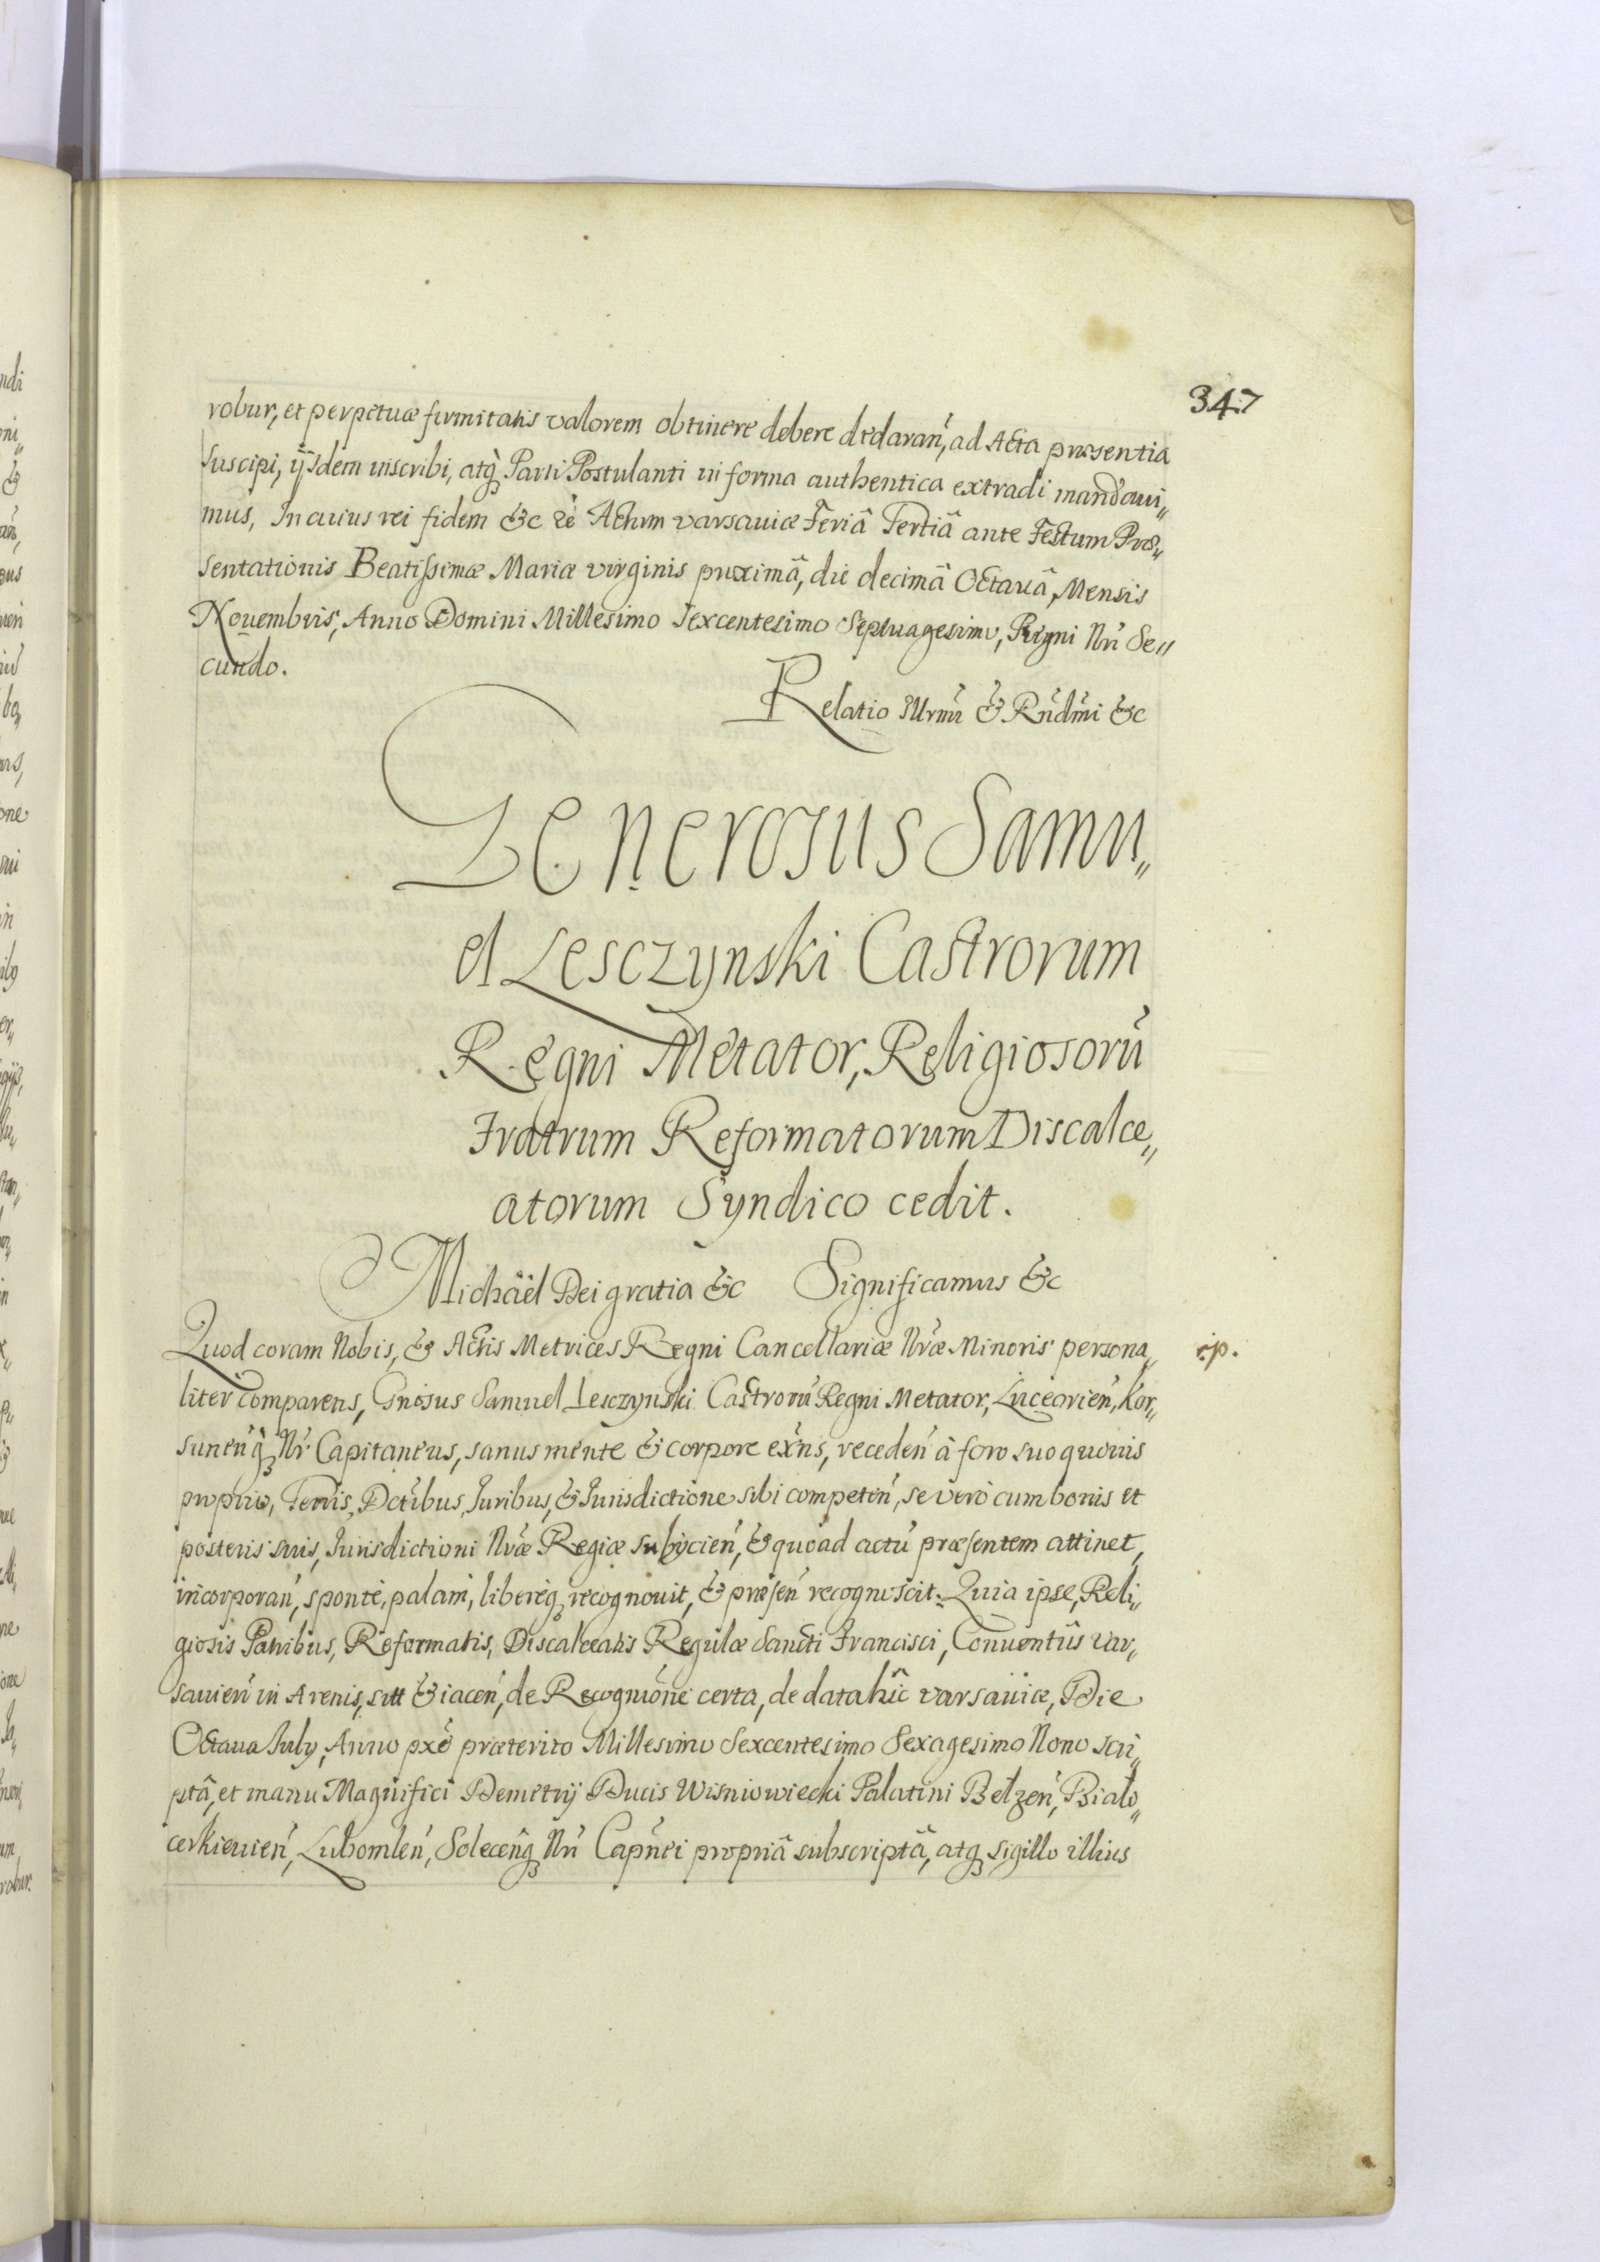 347
robur, et perpetuæ firmitatis valorem obtinere debere declaran̄, ad Acta præsentia
suscipi, ijsdem inscribi, atq; Parti Postulanti in forma authentica extradi mandaui„
mus, In cuius rei fidem &c Actum varsauiæ Feriâ Tertiâ ante Festum Præ„
sentationis Beatissimæ Mariæ virginis proximâ, die decimâ Octauâ, Mensis
Nouembris, Anno Domini Millesimo Sexcentesimo Septuagesimo, Regni Nrī Se„
cundo.
Relatio Illrmī & Rn̄dmī &c
Generosus Samu„
el Lesczynski Castrorum
Regni Metator, Religiosorū
Fratrum Reformatorum Discalce„
atorum Syndico cedit.
Michäel Dei gratia &c Significamus &c
Quod coram Nobis, & Actis Metrices Regni Cancellariæ Nrǣ Minoris persona„
r.p.
liter comparens, Gn̄osus Samuel Lesczynski Castrorū Regni Metator, Luceorien̄, Kor„
sunen̄q; Nr̄ Capitaneus, sanus mente & corpore exn̄s, receden̄ â foro suo quouis
proprio, Terris, Dctībus, Iuribus, & Iurisdictione sibi competen̄, se verò cum bonis et
posteris suis, Iurisdictioni Nrǣ Regiæ subijcien̄, & quoad actū præsentem attinet,
incorporan̄, sponte, palam, libereq; recognouit, & præsen̄ recognoscit. Quia ipse, Reli„
giosis Patribus, Reformatis, Discalceatis Regulæ Sancti Francisci, Conuentûs Var„
sauien̄ in Arenis, sitt & iacen̄, de Recogniōne certa, de data hîc varsauiæ, Die
Octaua July, Anno pxē præterito Millesimo Sexcentesimo Sexagesimo Nono scri„
ptâ, et manu Magnifici Demetrij Ducis Wisniowiecki Palatini Belzen̄, Bialo„
cerkieuien̄, Lubomlen̄, Solecen̄q; Nrī Capn̄ei propriâ subscriptâ, atq; sigillo illius